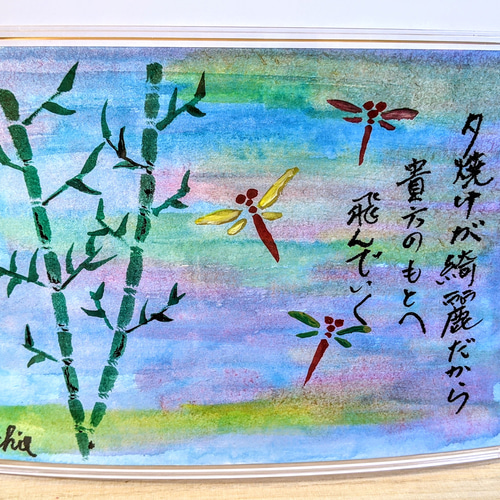 夕焼けが綺麗だから
貴方のもとへ
飛んでいく